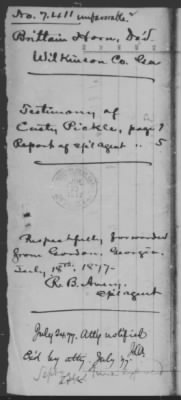 No. 7.411 unfavorable.
Brittain Horn, Dec'd
Wilkinson Co. Ga
Testimony of
Custy Pickle, page 9
Report of Sp'l agent .. 5
Respectfully forwarded
from Gordon, Georgia.
July 18th, 1877-
R. B. Avery
Sp'l agent
July 24.77. Atty notified
by atty. July 77.